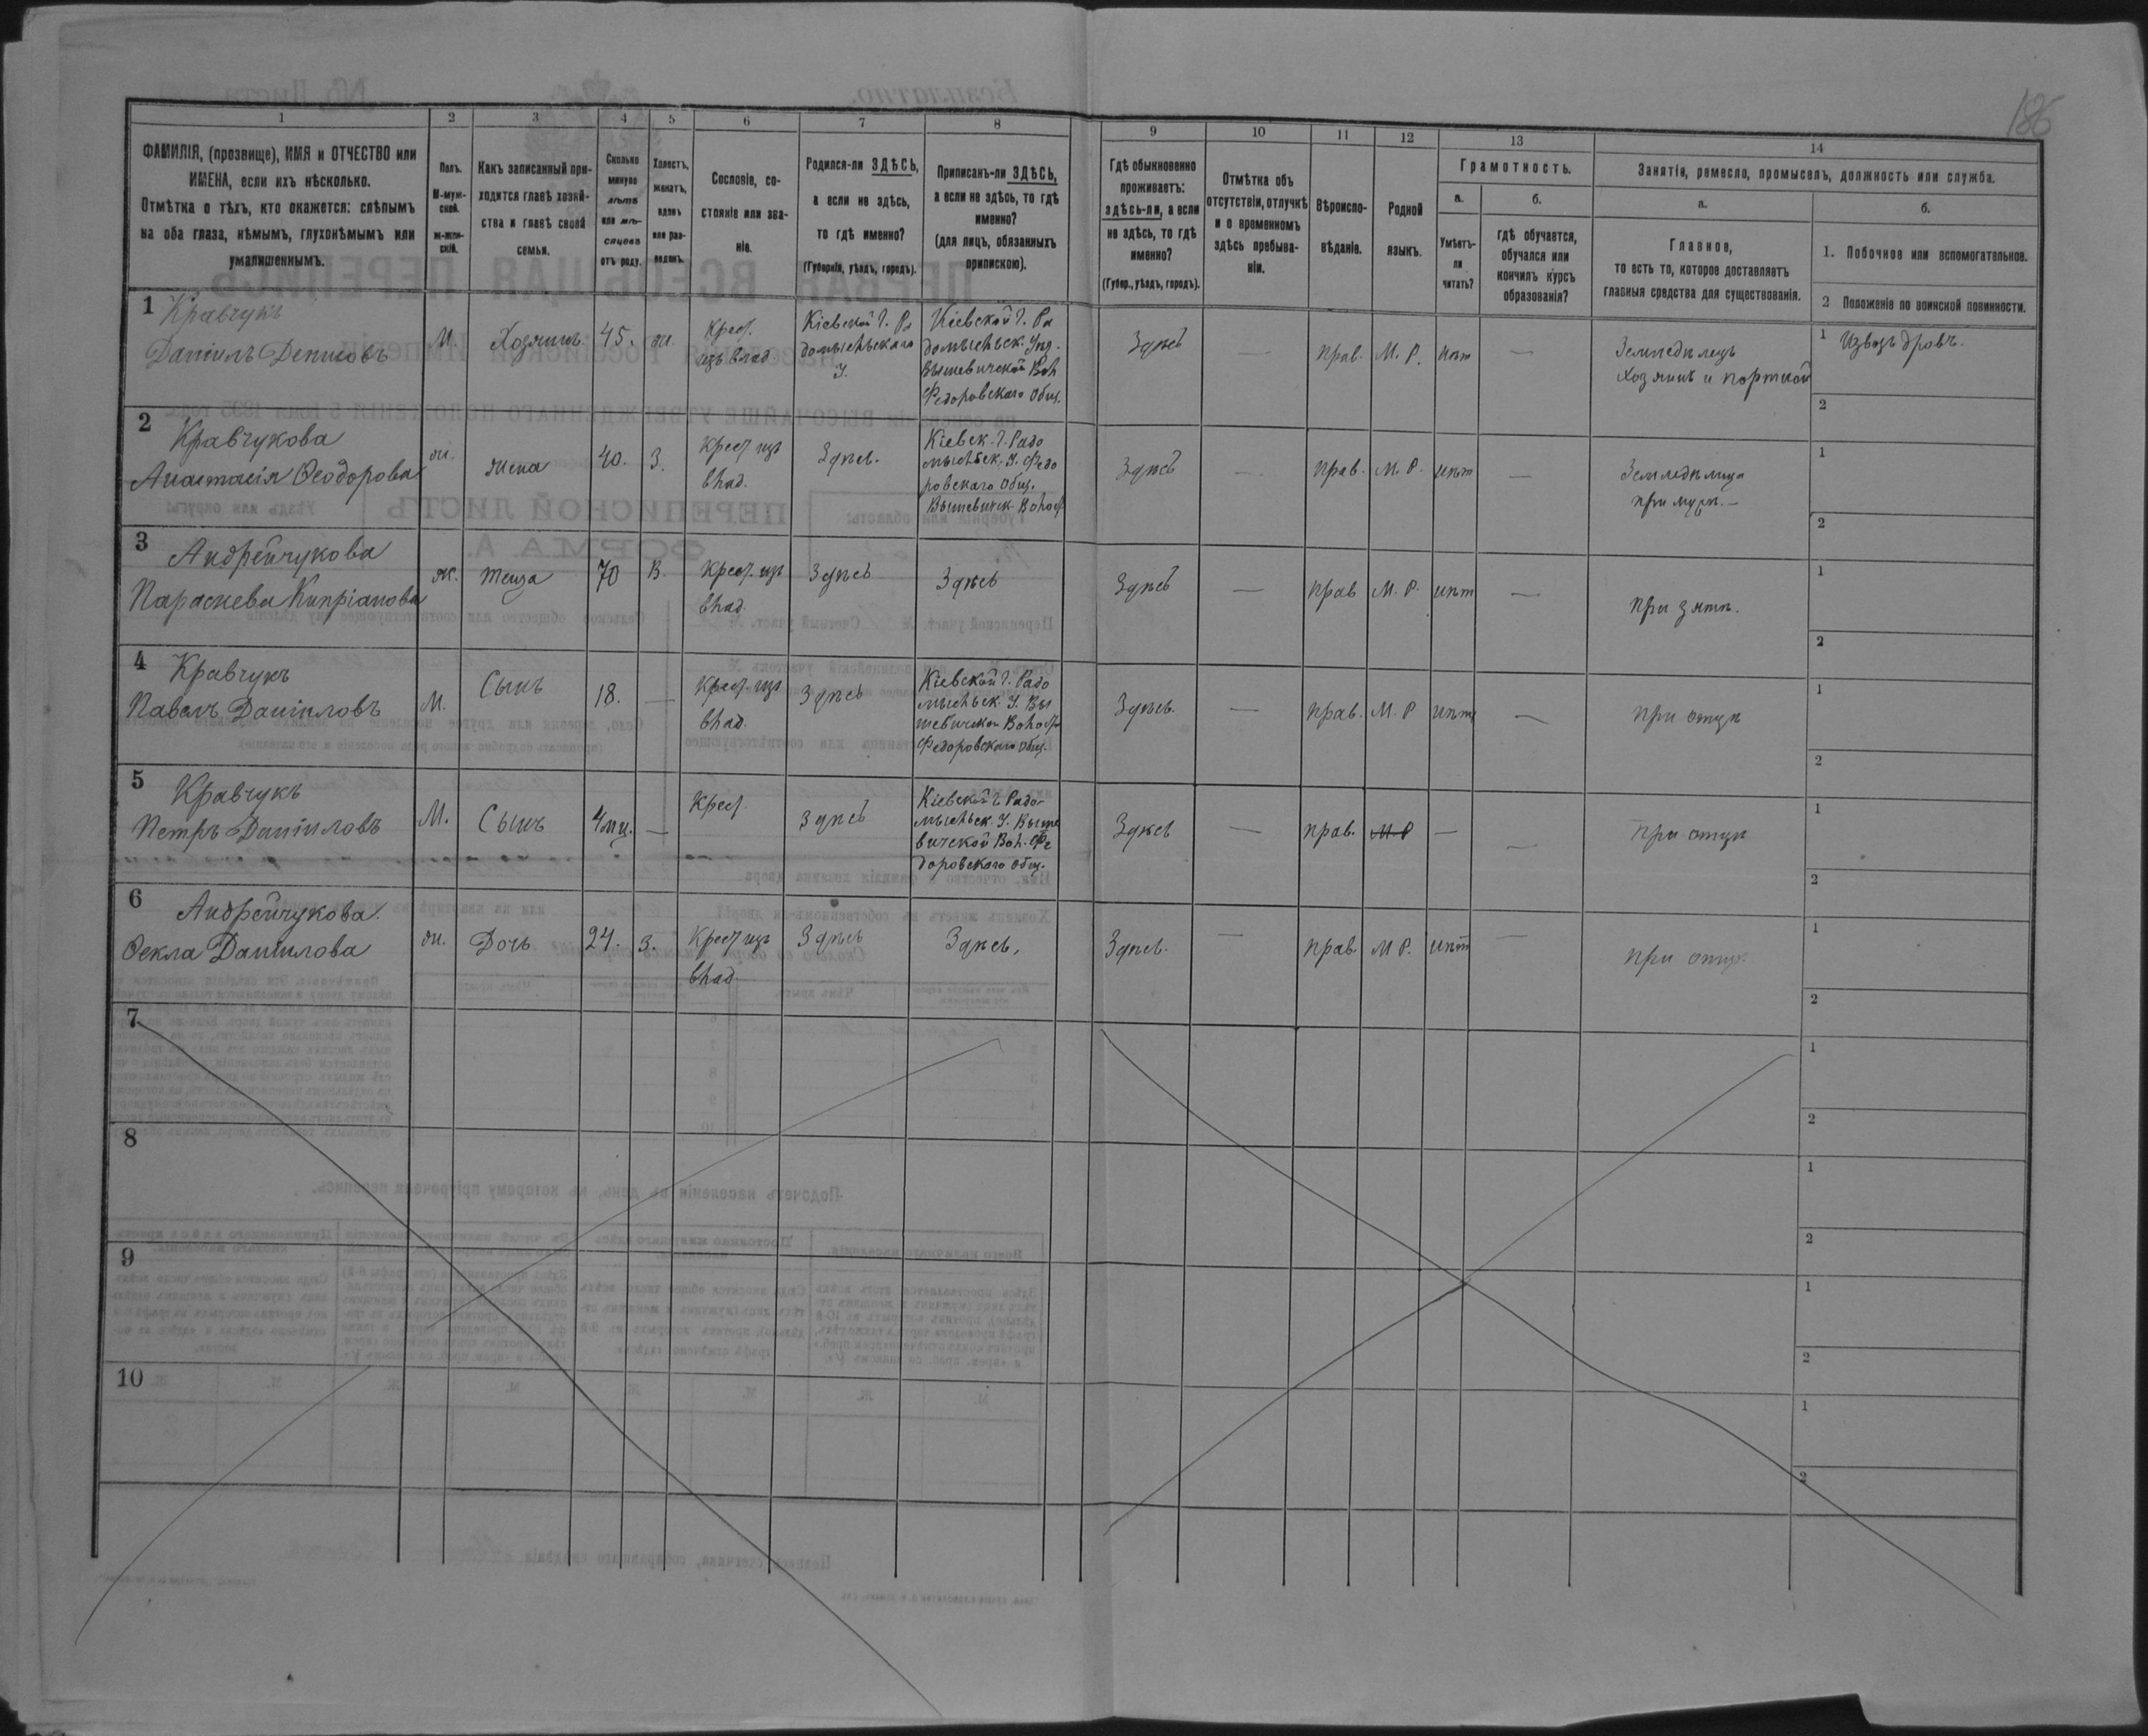 186
1
2
3
4
5
6
7
8
9
10
11
12
13
14
ФАМИЛІЯ, (прозвище), ИМЯ и ОТЧЕСТВО или
ИМЕНА, если ихъ нѣсколько.
Отмѣтка о тѣхъ, кто окажется: слѣпымъ
на оба глаза, нѣмымъ, глухонѣмымъ или
умалишеннымъ.
Полъ.
М-муж-
ской.
ж-жен-
скій.
Какъ записанный при-
ходится главѣ хозяй-
ства и главѣ своей
семьи.
Сколько
минуло
лѣтъ
или мѣ-
сяцевъ
отъ роду.
Холостъ,
женатъ,
вдовъ
или раз-
веденъ.
Сословіе, со-
стояніе или зва-
ніе.
Родился-ли ЗДѢСЬ,
а если не здѣсь,
то гдѣ именно?
(Губернія, уѣздъ, городъ).
Приписанъ-ли ЗДѢСЬ,
а если не здѣсь, то гдѣ
именно?
(для лицъ, обязанныхъ
припискою).
Гдѣ обыкновенно
проживаетъ:
здѣсь-ли, а если
не здѣсь, то гдѣ
именно?
(Губер., уѣздъ, городъ).
Отмѣтка объ
отсутствіи, отлучкѣ
и о временномъ
здѣсь пребыва-
ніи.
Вѣроиспо-
вѣданіе.
Родной
языкъ.
Грамотность.
а.
Умѣетъ-
ли
читать?
б.
гдѣ обучается,
обучался или
кончилъ курсъ
образованія?
Занятіе, ремесло, промыселъ, должность или служба.
а.
Главное,
то есть то, которое доставляетъ
главныя средства для существованія.
б.
1. Побочное или вспомогательное.
2 Положеніе по воинской повинности.
1 Кравчукъ
Даніилъ Денисовъ
М.
Хозяинъ
45.
ж.
Крест.
изъ влад
Кіевской Г. Ра
домысльскаго
У.
Кіевской Г. Ра
домысльск. Уѣз.
Вышевичской Вол
Федоровскаго общ.
Здѣсь
—
прав.
М. Р.
нѣт
—
Земледѣлецъ
Хозяинъ и портной
1 Извозъ дровъ.
2
2 Кравчукова
Анастасія Ѳеодорова
ж.
жена
40.
З.
Крест изъ
влад.
Здѣсь.
Кіевск. Г. Радо
мысльск. У. Федо
ровскаго общ.
Вышевичск. Волос
Здѣсь
—
прав.
М. Р.
нѣт
—
Земледѣлица
при мужѣ.
1
2
3 Андрейчукова
Параскева Кипріанова
ж.
теща
70
В.
Крест. изъ
влад.
Здѣсь
Здѣсь
Здѣсь
—
прав
М. Р.
нѣт
—
при зятѣ.
1
2
4 Кравчукъ
Павелъ Даніиловъ
М.
Сынъ
18.
—
Крест. изъ
влад.
Здѣсь
Кіевской Г. Радо
мысльск. У. Вы
шевичской Волос
Федоровскаго общ.
Здѣсь.
—
прав.
М. Р
нѣт
—
при отцѣ
1
2
5 Кравчукъ
Петръ Даніиловъ
М.
Сынъ
4 мц.
—
Крест.
Здѣсь
Кіевской Г. Радо
мысльск. У. Выше
вичской Вол. Фе
доровскаго общ.
Здѣсь
—
прав.
М. Р
—
—
при отцѣ
1
2
6 Андрейчукова.
Ѳекла Даніилова
ж.
Дочь
24.
З.
Крест изъ
влад.
Здѣсь
Здѣсь.
Здѣсь.
—
прав.
М Р.
нѣт
—
при отцѣ.
1
2
7
1
2
8
1
2
9
1
2
10
1
2